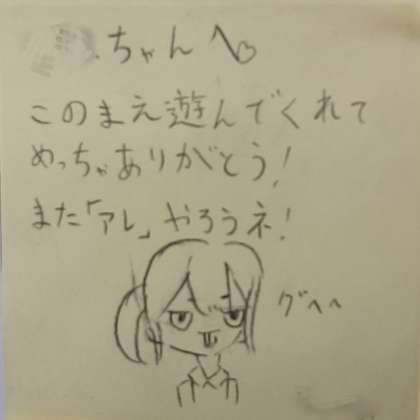 ちゃんへ♡
このまえ遊んでくれて
めっちゃありがとう!
また「アレ」やろうネ!
グへへ